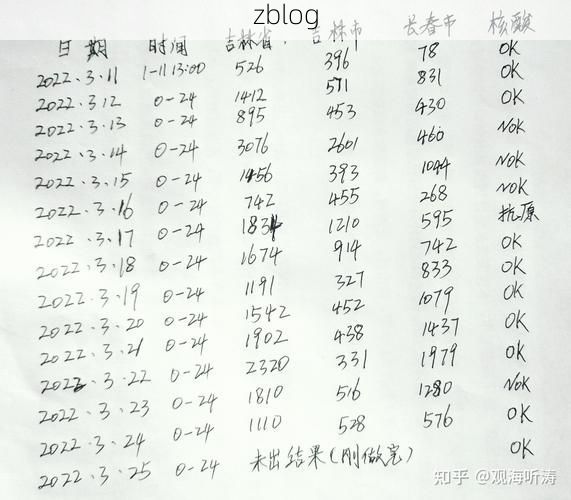 zblog
日期 时间 吉林省. 吉林市 长春市 核酸
2022.3.11 1-11 13:00 526 396 78 OK
2022.3.12 0-24 1412 571 831 OK
2022.3.13 0-24 895 453 430 OK
2022.3.14 0-24 3076 2601 460 NOK
2022.3.15 0-24 1456 393 1044 NOK
2022.3.16 0-24 742 455 268 NOK
2022.3.17 0-24 1834 1210 595 抗原
2022.3.18 0-24 1674 914 742 OK
2022.3.19 0-24 1191 327 833 OK
2022.3.20 0-24 1542 452 1079 OK
2022.3.21 0-24 1902 438 1437 OK
2022.3.22 0-24 2320 331 1979 OK
2022.3.23 0-24 1810 516 1280 NOK
2022.3.24 0-24 1110 528 576 OK
2022.3.25 0-24 未出结果(刚做完) OK
知乎 @观海听涛